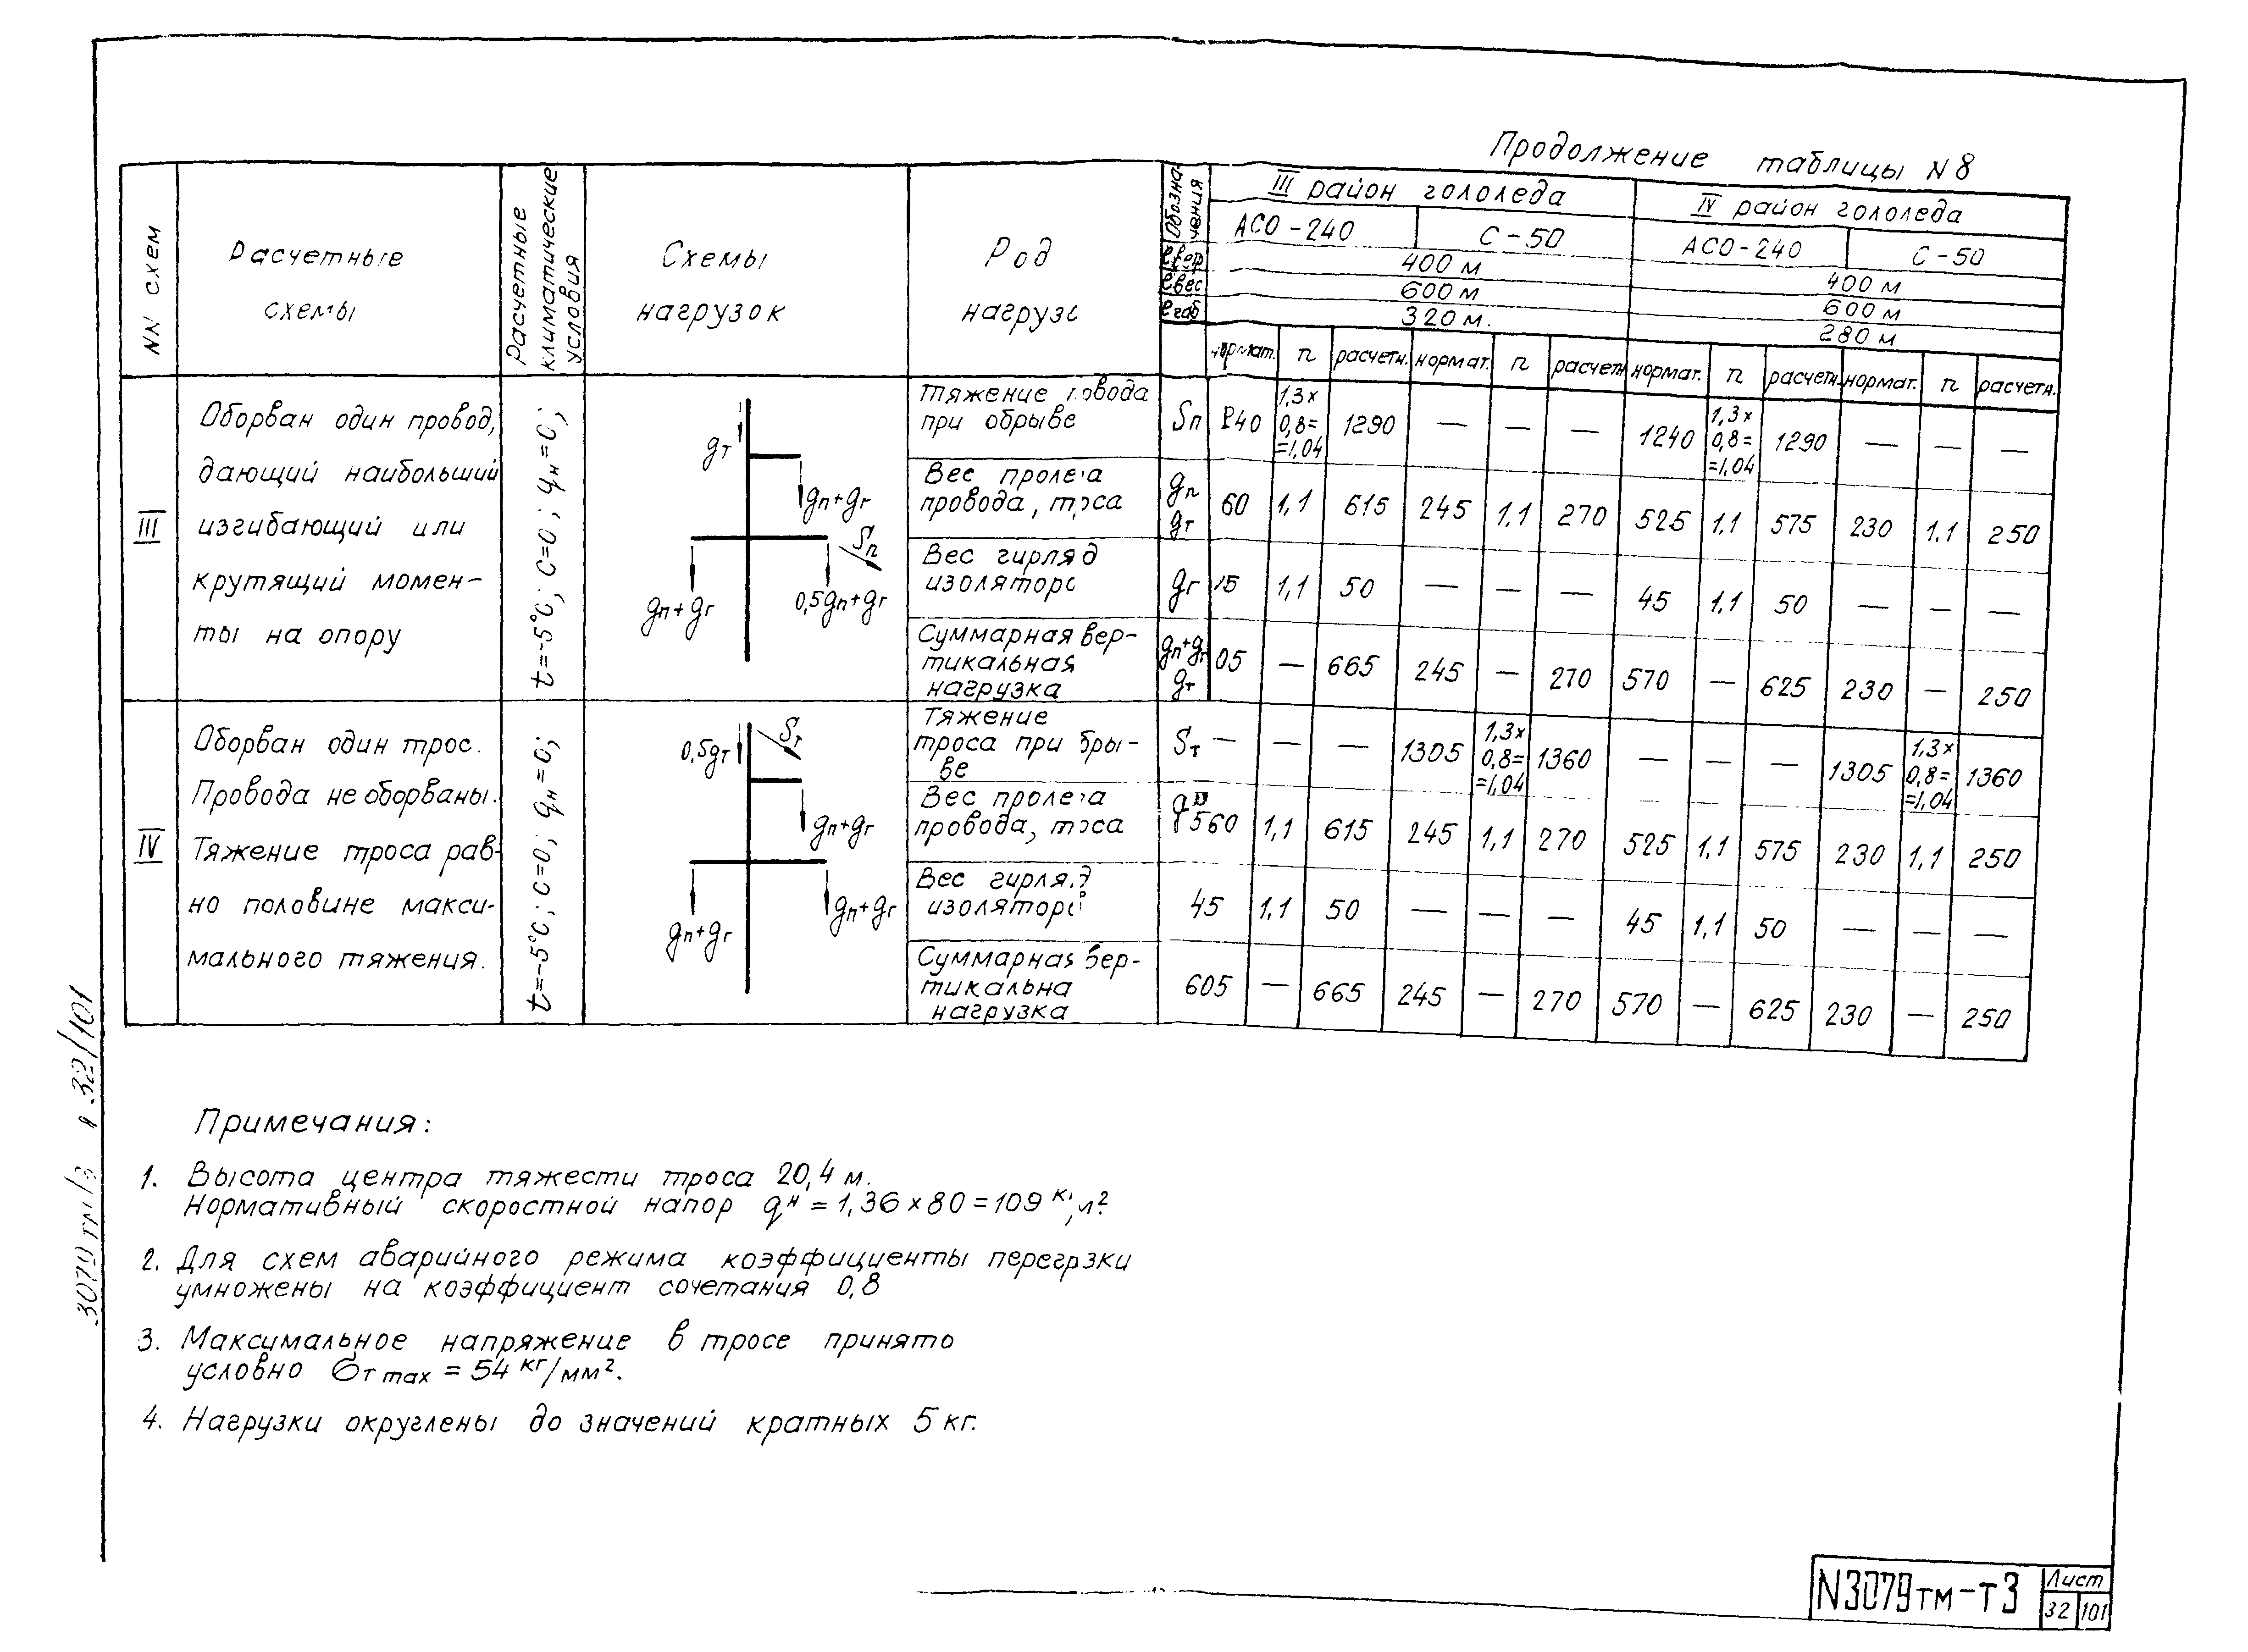 Продолжение таблицы N 8
NN схем
Расчетные
схемы
Расчетные
климатические
условия
Схемы
нагрузок
Род
Обозна-
чения
III район гололеда
IV район гололеда
АСО-240
С-50
АСО-240
С-50
400 м
400 м
ℓвес
600 м
600 м
ℓгаб
320 м.
280 м
нормат. n расчетн. нормат. n расчетн нормат. n расчетн. нормат. n расчетн.
III
Оборван один провод,
дающий наибольший
изгибающий или
крутящий момен-
ты на опору
t=-5°С; С=0; qн=0;
gт
gп+gг
Sп
gп+gг
0,5gп+gг
Тяжение
при обрыве
Sп
1,3×0,8==1,04 1290 — — — 1240 1,3×0,8==1,04 1290 — — —
Вес пролета
провода,
gп
gт
60 1,1 615 245 1,1 270 525 1,1 575 230 1.1 250
Вес
gг
1,1 50 — — — 45 1,1 50 — — —
Суммарная вер-
тикальная
нагрузка
gп+gг
gт
05 — 665 245 — 270 570 — 625 230 — 250
IV
Оборван один трос.
Провода не оборваны.
Тяжение троса рав-
но половине макси-
мального тяжения.
t=-5°С; С=0; qн=0;
0,5gт
Sт
gп+gг
gп+gг
gп+gг
Тяжение
троса при
ве
Sт
— — — 1305 1,3×0,8==1,04 1360 — — — 1305 1,3×0,8==1,04 1360
Вес пролета
провода,
560 1,1 615 245 1,1 270 525 1,1 575 230 1,1 250
Вес
45 1,1 50 — — — 45 1,1 50 — — —
Суммарная вер-
тикальна
нагрузка
605 — 665 245 — 270 570 — 625 230 — 250
Примечания:
1. Высота центра тяжести троса 20,4 м.
Нормативный скоростной напор qн = 1,36 × 80 = 109
2. Для схем аварийного режима коэффициенты перегрзки
умножены на коэффициент сочетания 0,8
3. Максимальное напряжение в тросе принято
условно бт max = 54 кг/мм².
4. Нагрузки округлены до значений кратных 5 кг.
32/101
N3079тм-Т3
Лист
32 101